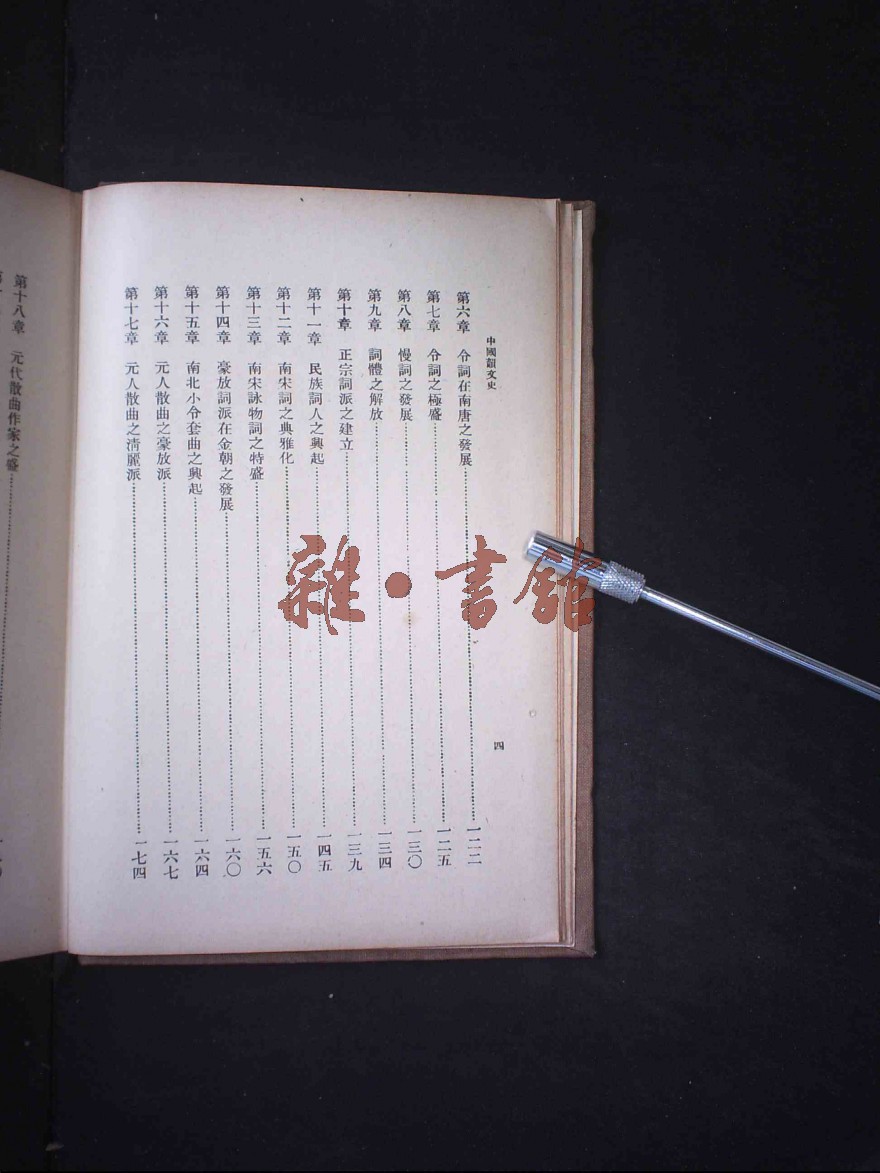 中國韻文史
四
第六章　令詞在南唐之發展……一二二
第七章　令詞之極盛……一二五
第八章　慢詞之發展……一三〇
第九章　詞體之解放……一三四
第十章　正宗詞派之建立……一三九
第十一章　民族詞人之興起……一四五
第十二章　南宋詞之典雅化……一五〇
第十三章　南宋詠物詞之特盛……一五六
第十四章　豪放詞派在金朝之發展……一六〇
第十五章　南北小令套曲之興起……一六四
第十六章　元人散曲之豪放派……一六七
第十七章　元人散曲之清麗派……一七四
第十八章　元代散曲作家之盛……
雜・書館